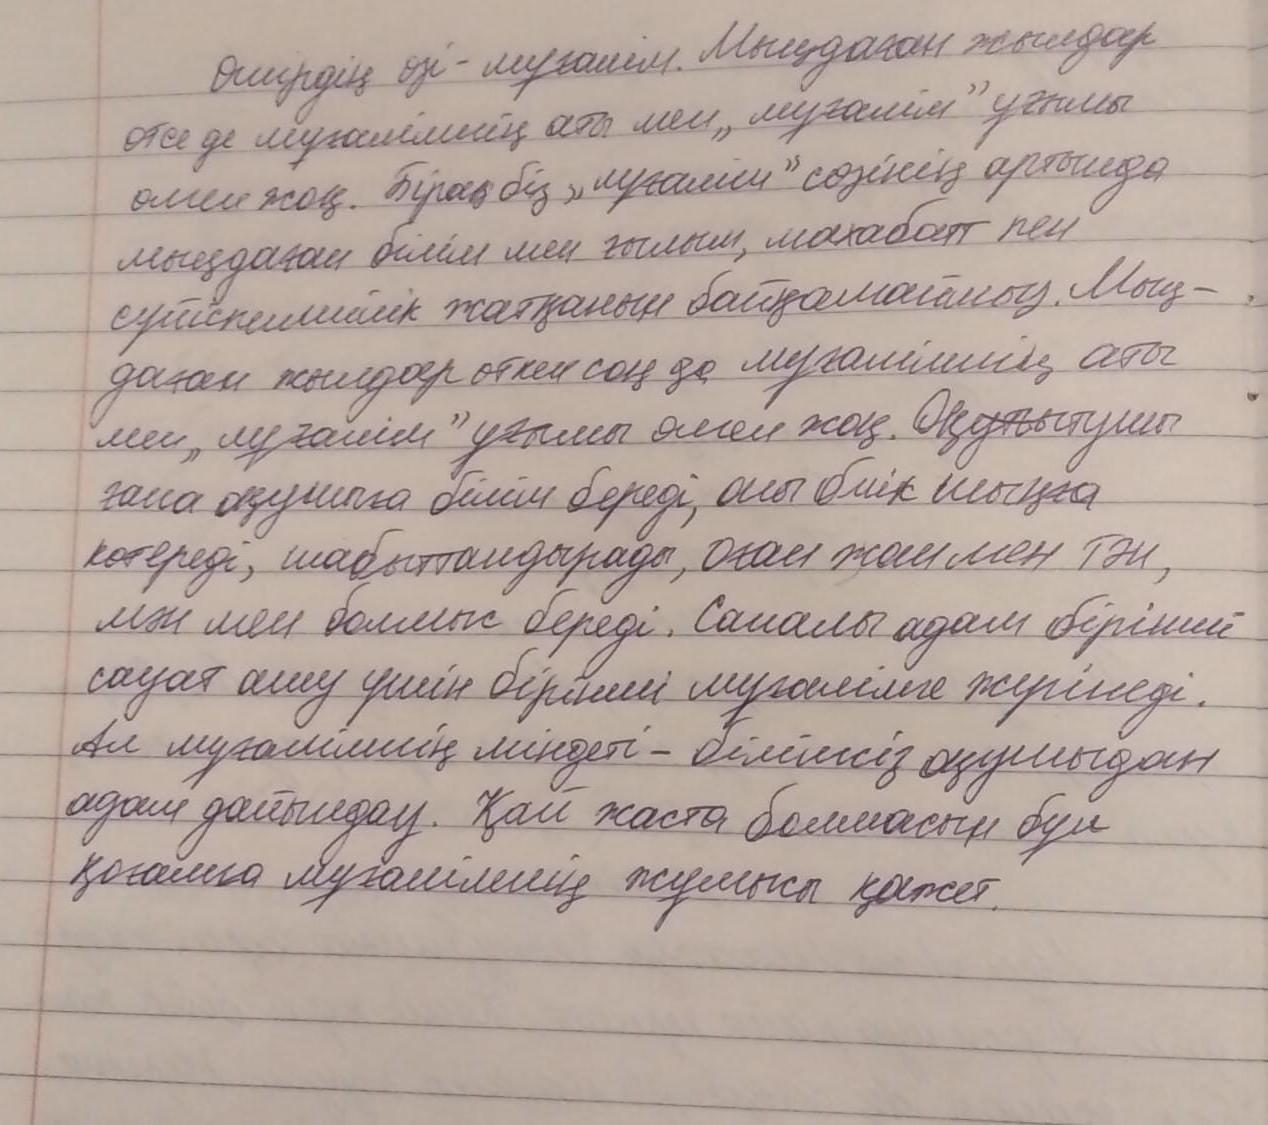 Өмірдің өзі - мұғалім. Мыңдаған жылдар
өтсе де мұғалімнің аты мен „мұғалім” ұғымы
өлген жоқ. Бірақ біз „мұғалім” сөзінің артында
мыңдаған білім мен ғылым, махаббат пен
сүйіспеншілік жатқанын байқамаймыз. Мың-
даған жылдар өткен соң да мұғалімнің аты
мен „мұғалім” ұғымы өлген жоқ. Оқытушы
ғана оқушыға білім береді, оны биік шыңға
көтереді, шабыттандырады, оған жан мен тән,
мән мен болмыс береді. Саналы адам бірінші
сауат ашу үшін бірінші мұғалімге жүгінеді.
Ал мұғалімнің міндеті – білімсіз оқушыдан
адам дайындау. Қай жаста болмасын бұл
қоғамға мұғалімнің жұмысы қажет.